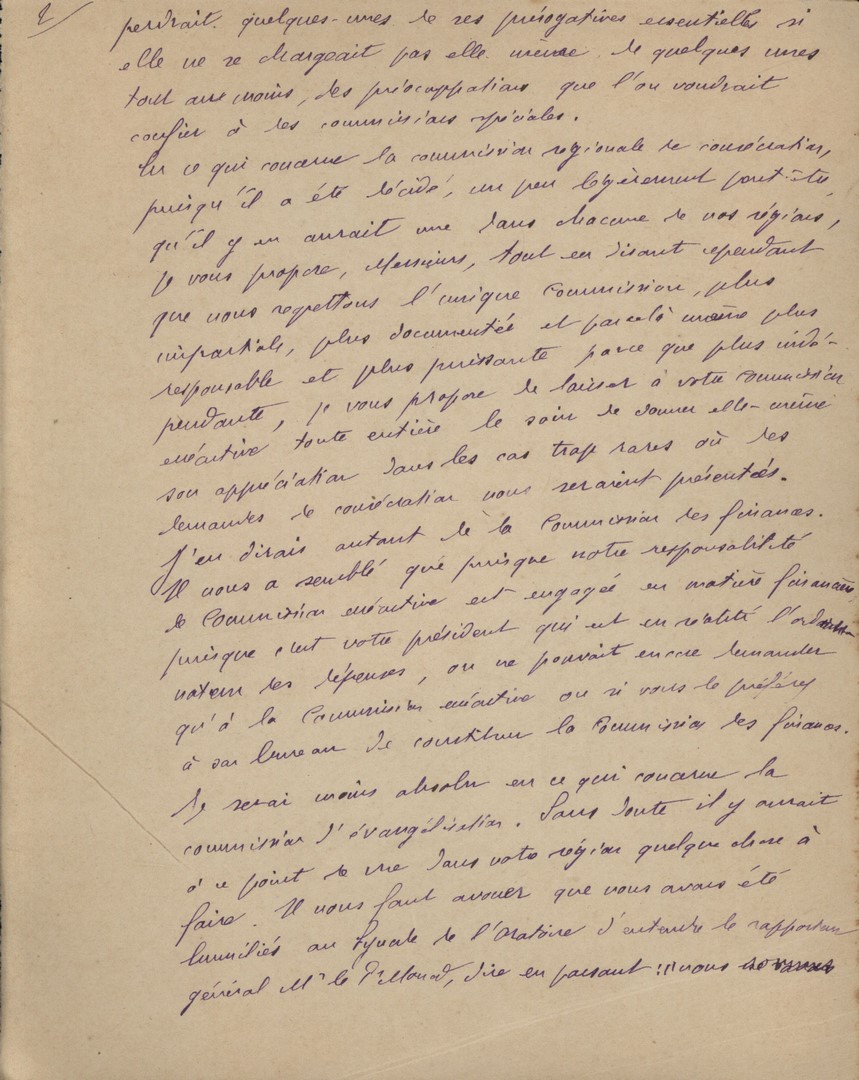 2/
perdrait quelques-unes de ses prérogatives essentielles si
elle ne se chargeait pas elle même de quelques unes
tout au moins, des préoccupations que l'on voudrait
confier à des commissions spéciales.
En ce qui concerne la commission régionale de consécration,
puisqu'il a été décidé, un peu légèrement peut-être,
qu'il y en aurait une dans chacune de nos régions,
je vous propose, Messieurs, tout en disant cependant
que nous regrettons l'unique Commission, plus
impartiale, plus documentée et par cela même plus
responsable et plus puissante parce que plus indé-
pendante, je vous propose de laisser à votre Commission
exécutive toute entière le soin de donner elle-même
son appréciation dans les cas trop rares où des
demandes de consécration nous seraient présentées.
J'en dirais autant de la Commission des finances.
Il nous a semblé que puisque notre responsabilité
de Commission exécutive est engagée en matière financière,
puisque c'est votre président qui est en réalité l'ordon-
nateur des dépenses, on ne pouvait encore demander
qu'à la Commission exécutive ou si vous le préférez
à son bureau de constituer la Commission des finances.
Je serai moins absolu en ce qui concerne la
commission d'évangélisation. Sans doute il y aurait
à ce point de vue dans votre région quelque chose à
faire. Il nous faut avouer que nous avons été
humiliés au Synode de l'Oratoire d'entendre le rapporteur
général Mr le Pr Monod, dire en passant : "nous